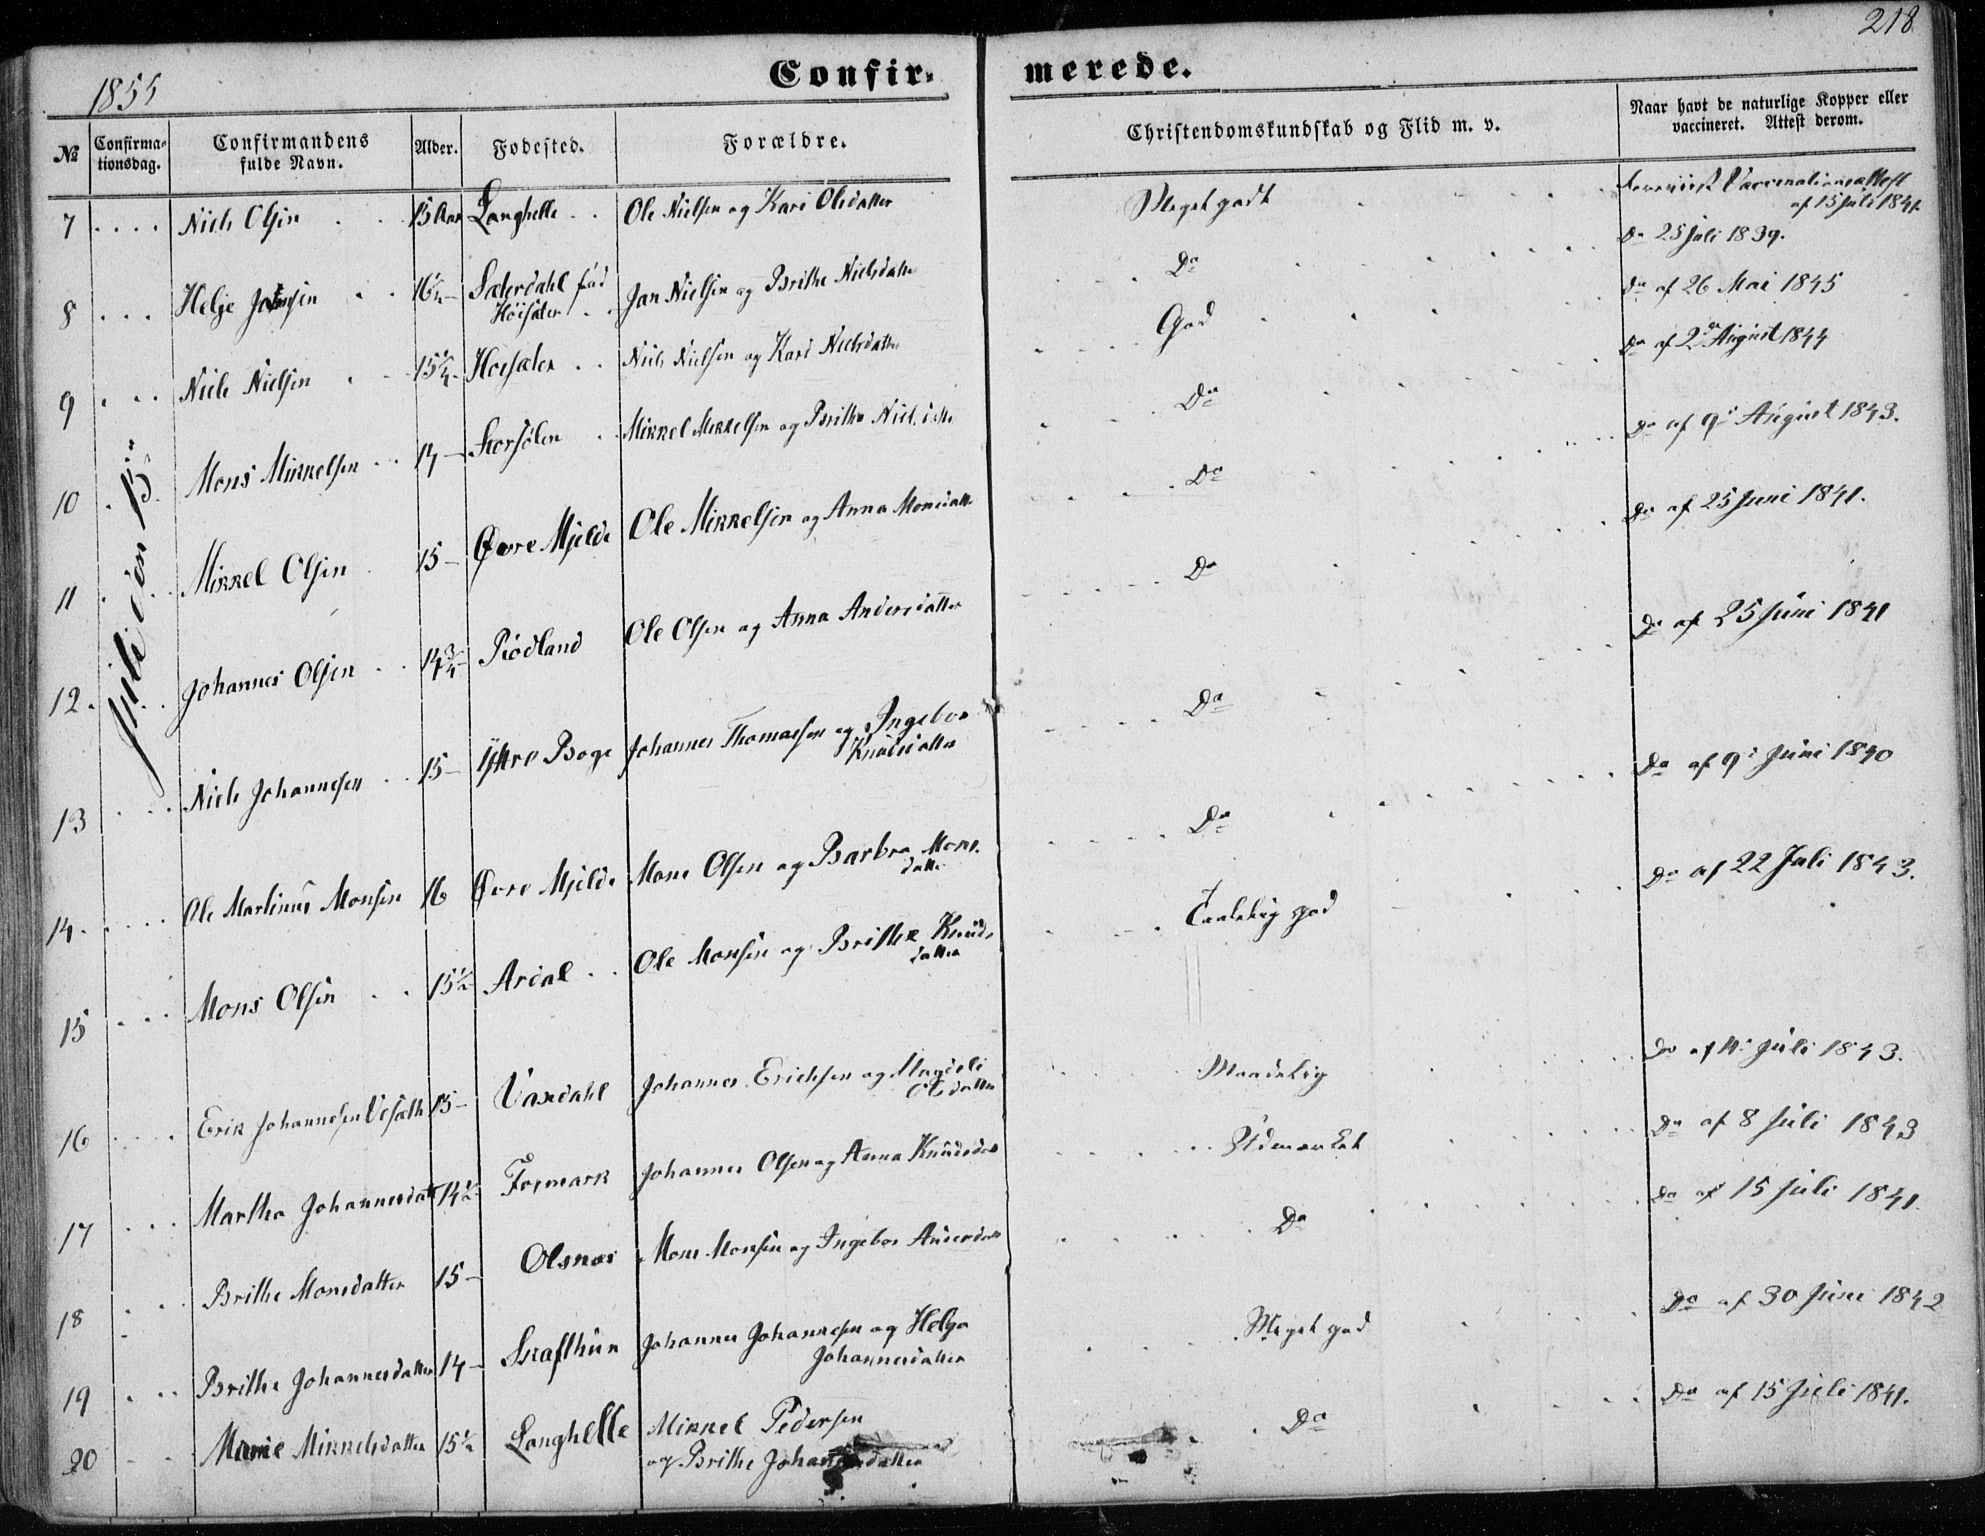 218
1855
Confir- merede.
№ Confirma-tionsdag. Confirmandens fulde Navn. Alder. Fodested. Forældre. Christendomskundskab og Flid m. v. Naar havt de naturlige Kopper eller vaccineret. Attest derom.
Juli den 15de
7 Niels Olsen 15 Aar Langhelle Ole Nielsen og Kari Olsdatter Meget godt Foreviist Vaccinationsattest af 15 Juli 1841.
8 Helje Jansen 16¼ Sæterdahl fød Höisæter Jan Nielsen og Brithe Nielsdatter Do Do 25 Juli 1839.
9 Niels Nielsen 15¼ Hoisæter Niels Nielsen og Kari Nielsdatter God Do af 26 Mai 1845
10 Mons Mikkelsen 14 Storsölen Mikkel Mikkelsen og Brithe Do Do af 2 August 1844
11 Mikkel Olsen 15 Övre Mjelde Ole Mikkelsen og Anna Monsdatter Do Do af 9 August 1843.
12. Johannes Olsen 14¾ Rödland Ole Olsen og Anna Andersdatter Do Do af 25 Juni 1841.
13 Niels Johannesen 15 Ittre Boge Johannes Thomassen og Ingebor Knudsdatter Do Do af 25 Juni 1841
14. Ole Martinus Monsen 16 Övre Mjelde Mons Olsen og Barbra Monsdatter Do Do af 9 Juni 1840
15 Mons Olsen 15½ Ardal Ole Monsen og Brithe Knudsdatter Taalelig god Do af 22 Juli 1843.
16 Erik Johannesen 15 Vaxdahl Johannes Erichsen og Magdeli Olsdatter Maadelig Do af 4 Juli 1843.
17 Martha Johannesdatter 14½ Fosmark Johannes Olsen og Anna Knudsdatter Udmærket Do af 8 Juli 1843
18 Brithe Monsdatter 15 Olsnæs Mons Monsen og Ingebor Andersdatter Do Do af 15 Juli 1841.
19 Brithe Johannesdatter 14 Skafthun Johannes Johannesen og Helga Johannesdatter Meget god Do af 30 Juni 1842
20 Marie Mikkelsdatter 15½ Langhelle Mikkel Pedersen og Brithe Johannesdatter Do Do af 15 Juli 1841.